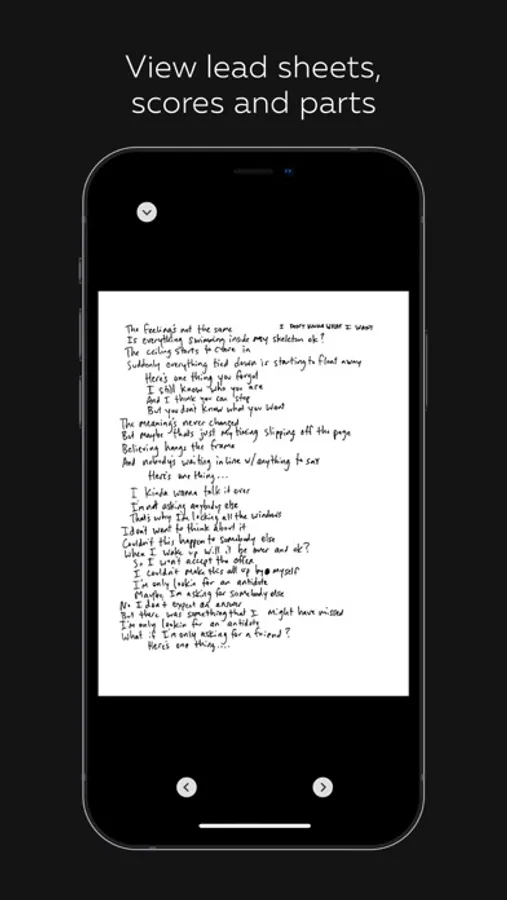 View lead sheets,
scores and parts
I DON'T KNOW WHAT I WANT
The feeling's not the same
Is everything swimming inside my skeleton ok?
The ceiling starts to cave in
Suddenly everything tied down is starting to float away
Here's one thing you forgot
I still know who you are
And I think you can stop
But you don't know what you want
The meaning's never changed
But maybe that's just my timing slipping off the page
Believing hangs the frame
And nobody's waiting in line w/ anything to say
Here's one thing...
I kinda wanna talk it over
I'm not asking anybody else
That's why I'm locking all the windows
I don't want to think about it
Couldn't this happen to somebody else
When I wake up will it be over and ok?
So I won't accept the offer
I couldn't make this all up by myself
I'm only lookin for an antidote
Maybe I'm asking for somebody else
No I don't expect an answer
But there was something that I might have missed
I'm only lookin for an antidote
What if I'm only asking for a friend?
Here's one thing....